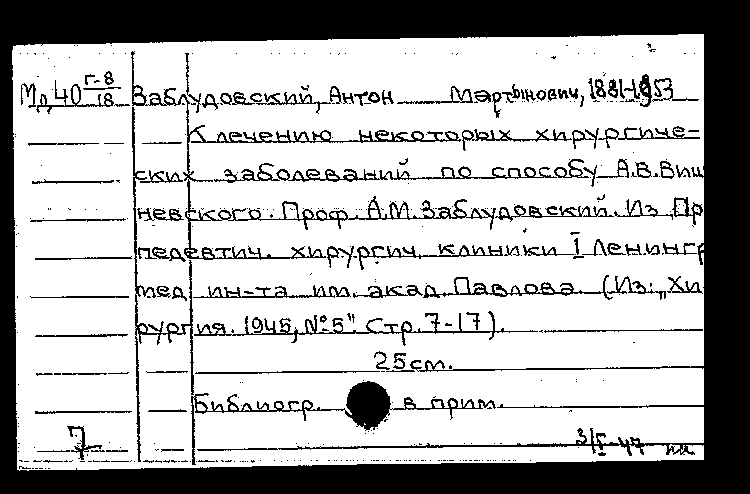 Мд40 Г-8/18 Заблудовский, Антон Мартынович, 1881-1953
К лечению некоторых хирургиче-
ских заболеваний по способу А.В.Виш
невского. Проф. А.М.Заблудовский. Из Пр
педевтич. хирургич. клиники I Ленингр
мед ин-та им. акад. Павлова. (Из: „Хи
рургия. 1945, №5" Стр. 7-17).
25см.
Библиогр. в прим.
7 3/I-47